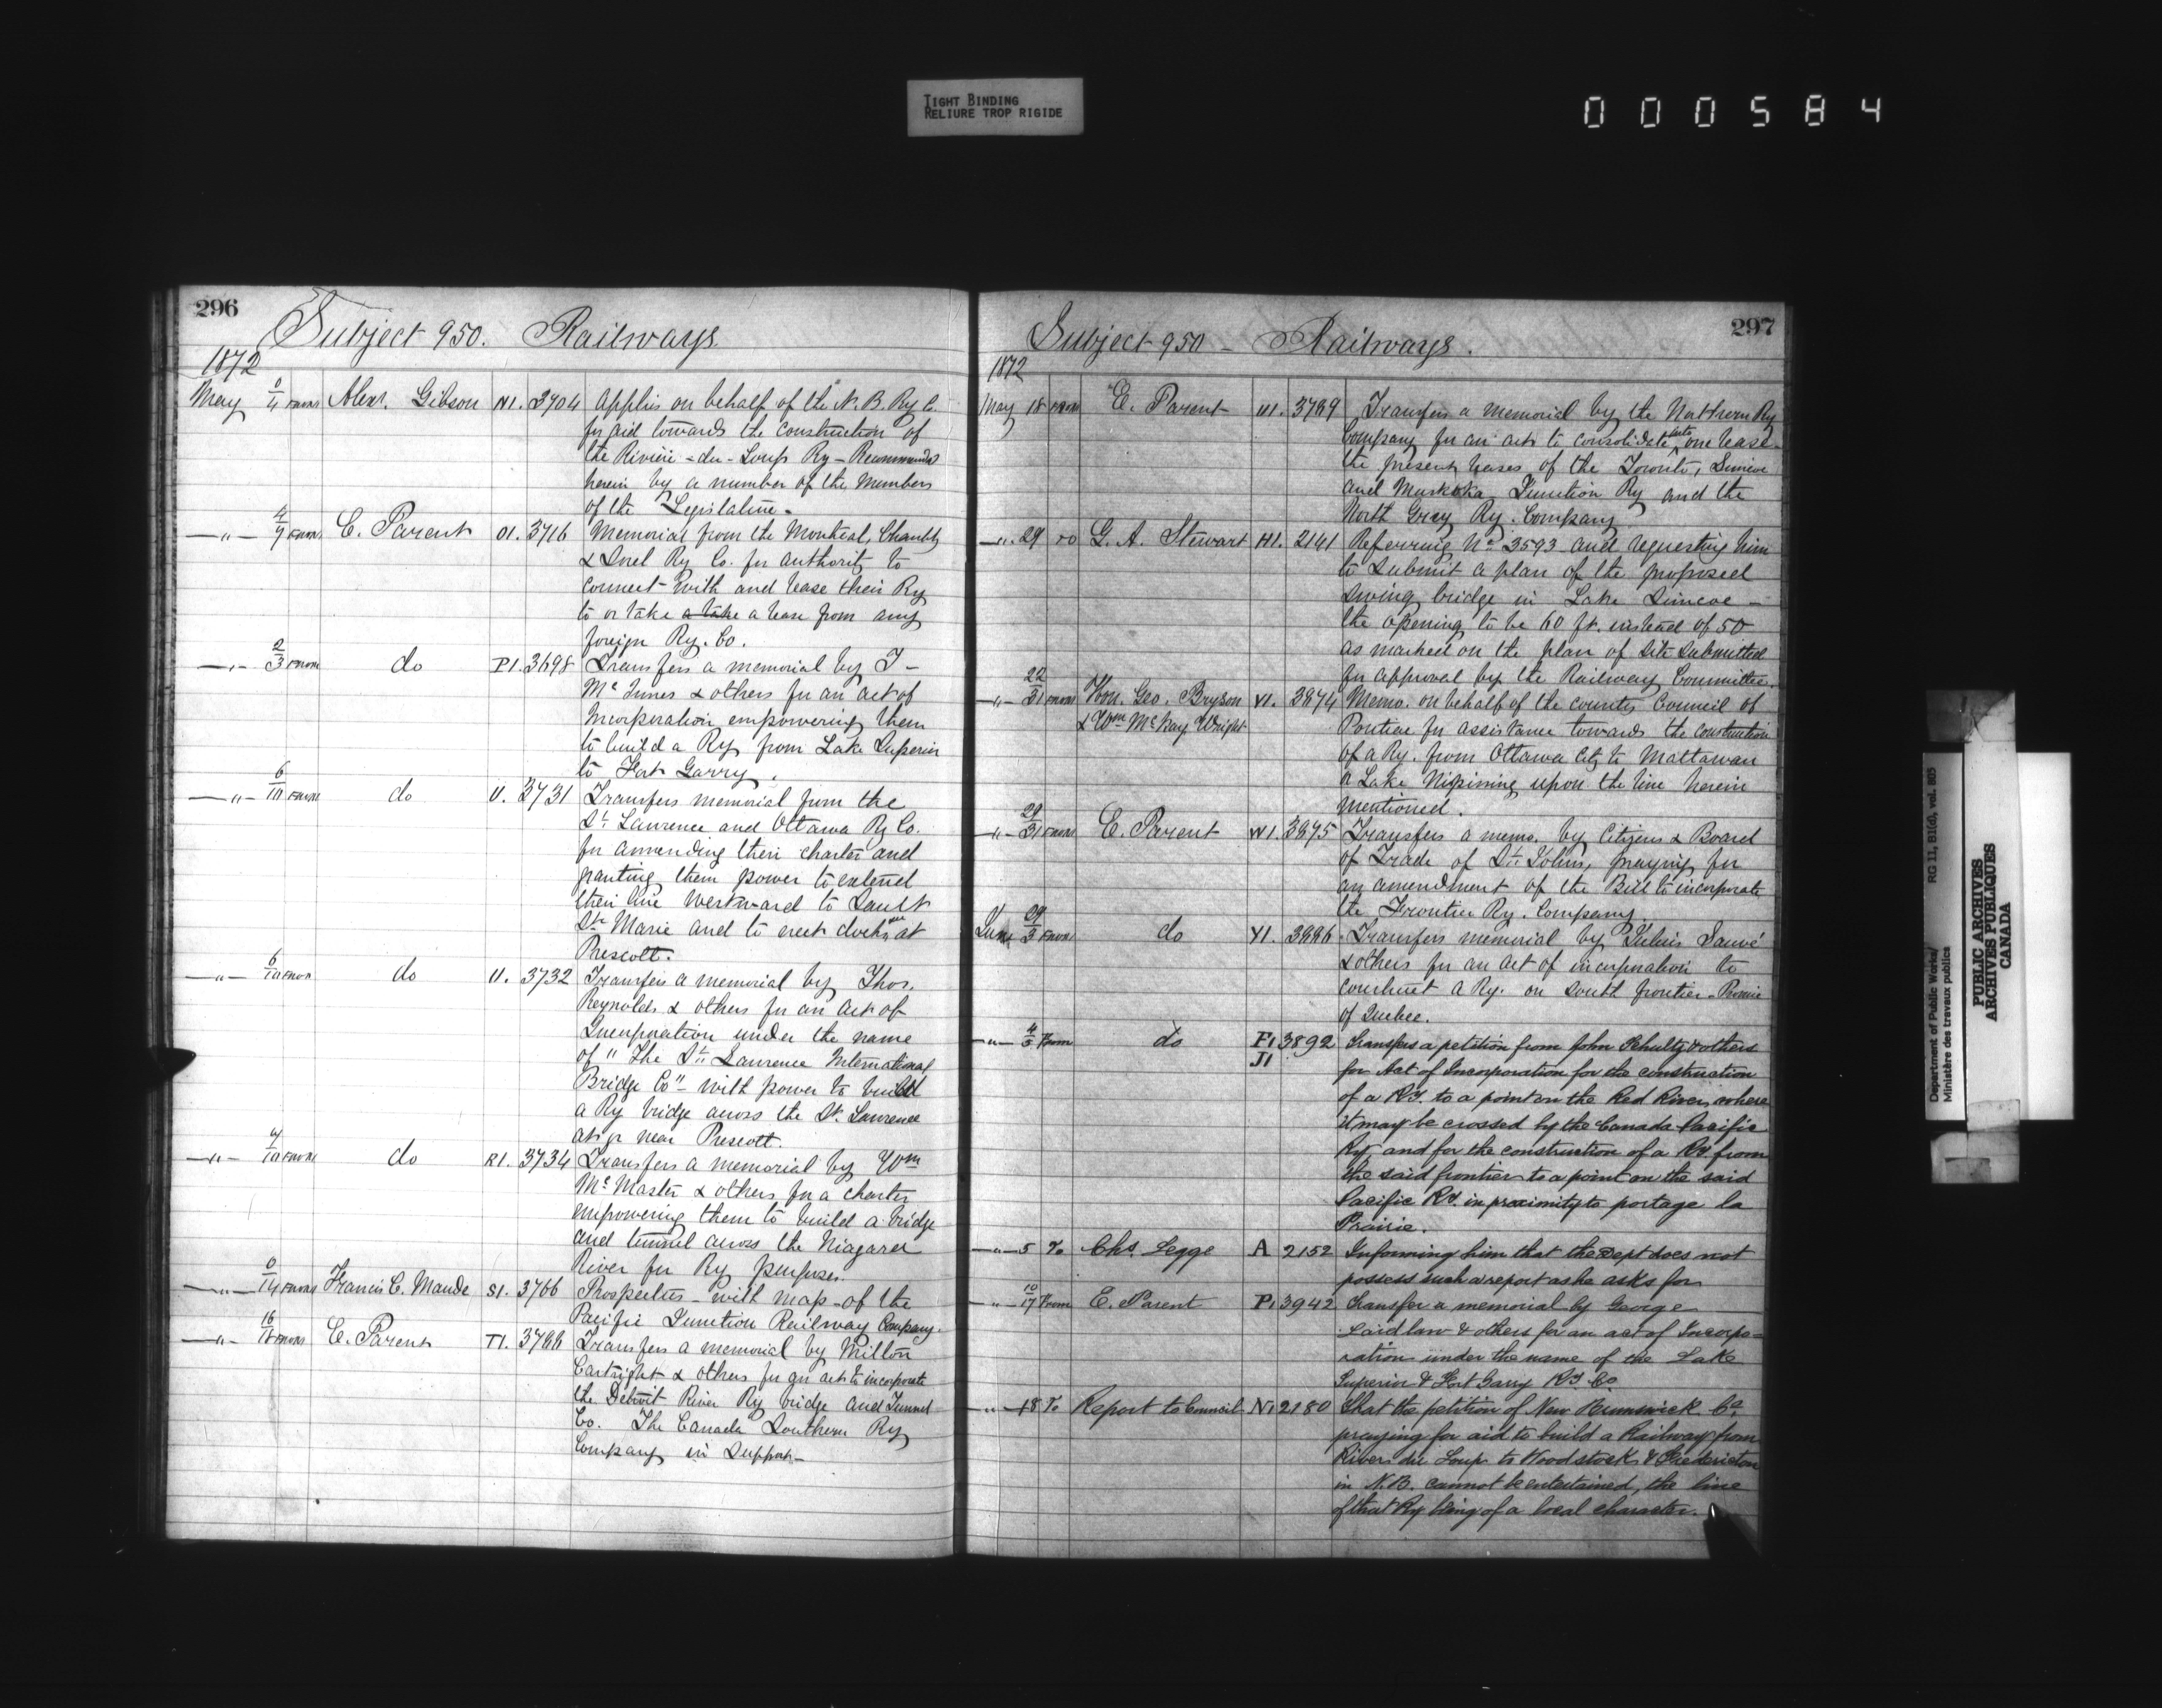 TIGHT BINDING
RELIURE TROP RIGIDE
000584
296
Subject 950. Railways
1872
May 0/4 FROM Alexr. Gibson N1. 3704 Applies on behalf of the N. B. Ry Co.
for aid towards the construction of
the Rivière-du-Loup Ry - Recommended
herein by a number of the Members
of the Legislature.
—"— 4/7 FROM E. Parent O1. 3716 Memorial from the Montreal, Chambly
& Sorel Ry Co. for authority to
connect with and lease their Ry
to or take a take a lease from any
foreign Ry. Co.
—"— 2/3 FROM do P1. 3698 Transfers a memorial by J-
McInnes & others for an act of
Incorporation empowering them
to build a Ry from Lake Superior
to Fort Garry.
—"— 6/10 FROM do U. 3731 Transfers memorial from the
St. Lawrence and Ottawa Ry Co.
for amending their charter and
granting them power to extend
their line Westward to Sault
Ste Marie and to erect docks at
Prescott.
—"— 6/10 FROM do U. 3732 Transfers a memorial by Thos.
Reynolds & others for an Act of
Incorporation under the name
of "The St. Lawrence International
Bridge Co" - with power to build
a Ry bridge across the St. Lawrence
at or near Prescott.
—"— 4/10 FROM do R1. 3734 Transfers a memorial by Wm
McMaster & others for a charter
empowering them to build a bridge
and tunnel across the Niagara
River for Ry purposes.
—"— 0/14 FROM Francis C. Maude S1. 3766 Prospectus - with map - of the
Pacific Junction Railway Company.
—"— 16/18 FROM E. Parent T1. 3788 Transfers a memorial by Milton
Cartright & others for an act to incorporate
the Detroit River Ry bridge and Tunnel
Co. The Canada Southern Ry
Company in Support -
297
Subject 950 - Railways.
1872
May 18 FROM E. Parent U1. 3789 Transfers a memorial by the Northern Ry
Company for an act to consolidate into one lease
the present leases of the Toronto, Simcoe
and Muskoka Junction Ry and the
North Grey Ry. Company
—"— 29 TO G. A. Stewart H1. 2141 Referring No 3593 and requesting him
to submit a plan of the proposed
swing bridge in Lake Simcoe -
the opening to be 60 ft. instead of 50
as marked on the plan of site submitted
for approval by the Railway Committee.
—"— 22/31 FROM Hon. Geo. Bryson V1. 3874 Memo. on behalf of the county Council of
& Wm McKay Wright Pontiac for assistance towards the construction
of a Ry. from Ottawa City to Mattawan
or Lake Nipissing upon the line herein
mentioned.
—"— 29/31 FROM E. Parent W1. 3875 Transfers a memo. by Citizens & Board
of Trade of St. Johns, praying for
an amendment of the Bill to incorporate
the Frontier Ry. Company.
June 29/3 FROM do Y1. 3886 Transfers memorial by Julius Sauvé
& others for an act of incorporation to
construct a Ry. on south frontier - Province
of Quebec.
—"— 4/5 From do F1 3892 Transfers a petition from John Schultz & others
J1 for Act of Incorporation for the construction
of a Ry. to a point on the Red River, where
it may be crossed by the Canada Pacific
Ry, and for the construction of a Ry from
the said frontier to a point on the said
Pacific Ry. in proximity to portage la
Prairie.
—"— 5 To Chs. Legge A 2152 Informing him that the Dept does not
possess such a report as he asks for
—"— 10/17 From E. Parent P1 3942 Transfer a memorial by George
Laidlaw & others for an act of Incorpo-
ration under the name of the Lake
Superior & Fort Garry Ry Co
—"— 18 To Report to Council N1 2180 That the petition of New Brunswick Co,
praying for aid to build a Railway from
River du Loup to Woodstock & Fredericton
in N.B. cannot be entertained, the line
of that Ry being of a local character.
Department of Public Works/ RG 11, B1(d), vol. 805
Ministère des travaux publics
PUBLIC ARCHIVES
ARCHIVES PUBLIQUES
CANADA